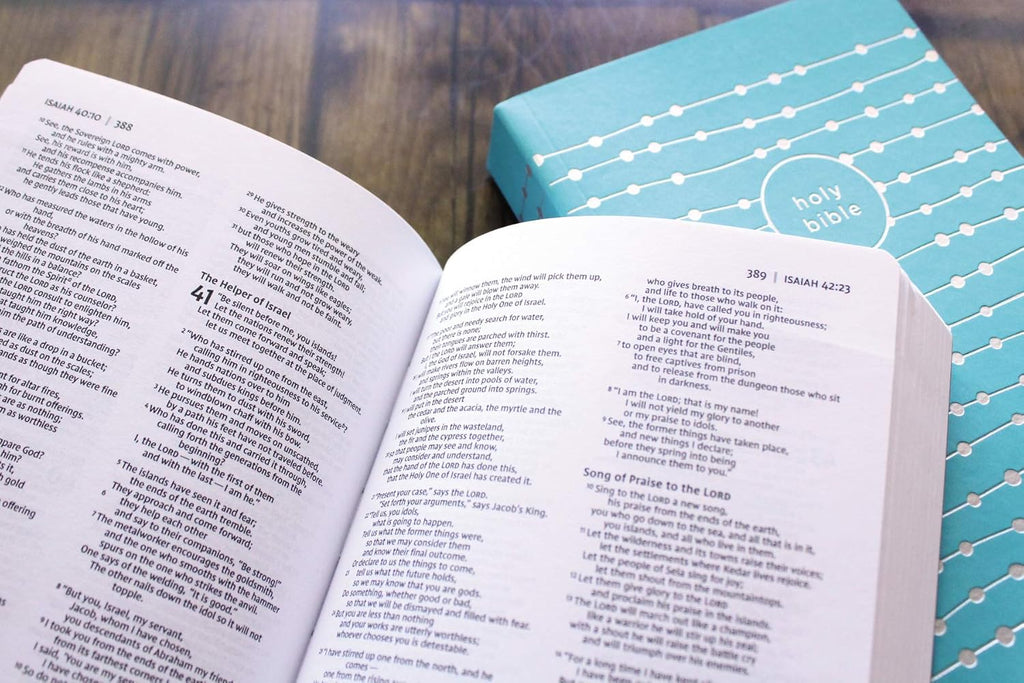 ISAIAH 40:10 | 388
10 See, the Sovereign LORD comes with power,
and he rules with a mighty arm.
See, his reward is with him,
and his recompense accompanies him.
11 He tends his flock like a shepherd:
He gathers the lambs in his arms
and carries them close to his heart;
he gently leads those that have young.
Who has measured the waters in the hollow of his
hand,
or with the breadth of his hand marked off the
heavens?
has held the dust of the earth in a basket,
weighed the mountains on the scales
the hills in a balance?
fathom the Spirit of the LORD,
the LORD as his counselor?
the LORD consult to enlighten him,
taught him the right way?
that taught him knowledge,
him the path of understanding?
are like a drop in a bucket;
as dust on the scales;
as though they were fine
for altar fires,
for burnt offerings.
are as nothing;
as worthless
compare God?
him?
it,
gold
offering
29 He gives strength to the weary
and increases the power of the weak.
30 Even youths grow tired and weary,
and young men stumble and fall;
31 but those who hope in the LORD
will renew their strength.
They will soar on wings like eagles;
they will run and not grow weary,
they will walk and not be faint.
The Helper of Israel
41 "Be silent before me, you islands!
Let the nations renew their strength!
Let them come forward and speak;
let us meet together at the place of judgment.
2 "Who has stirred up one from the east,
calling him in righteousness to his service?
He hands nations over to him
and subdues kings before him.
He turns them to dust with his sword,
to windblown chaff with his bow.
3 He pursues them and moves on unscathed,
by a path his feet have not traveled before.
4 Who has done this and carried it through,
calling forth the generations from the
beginning?
I, the LORD — with the first of them
and with the last — I am he."
5 The islands have seen it and fear;
the ends of the earth tremble.
They approach and come forward;
6 they help each other
and say to their companions, "Be strong!"
7 The metalworker encourages the goldsmith,
and the one who smooths with the hammer
spurs on the one who strikes the anvil.
One says of the welding, "It is good."
The other nails down the idol so it will not
topple.
8 "But you, Israel, my servant,
Jacob, whom I have chosen,
you descendants of Abraham my friend,
9 I took you from the ends of the earth,
from its farthest corners I
I said, 'You are my servant
I have chosen
10 So do not
389 | ISAIAH 42:23
will winnow them, the wind will pick them up,
and a gale will blow them away.
will rejoice in the LORD
and glory in the Holy One of Israel.
poor and needy search for water,
but there is none;
their tongues are parched with thirst.
But I the LORD will answer them;
the God of Israel, will not forsake them.
will make rivers flow on barren heights,
and springs within the valleys.
turn the desert into pools of water,
and the parched ground into springs.
will put in the desert
the cedar and the acacia, the myrtle and the
olive.
I will set junipers in the wasteland,
the fir and the cypress together,
so that people may see and know,
may consider and understand,
that the hand of the LORD has done this,
that the Holy One of Israel has created it.
"Present your case," says the LORD.
"Set forth your arguments," says Jacob's King.
"Tell us, you idols,
what is going to happen.
Tell us what the former things were,
so that we may consider them
and know their final outcome.
Or declare to us the things to come,
tell us what the future holds,
so we may know that you are gods.
Do something, whether good or bad,
so that we will be dismayed and filled with fear.
But you are less than nothing
and your works are utterly worthless;
whoever chooses you is detestable.
"I have stirred up one from the north, and he
comes —
one from the rising
who gives breath to its people,
and life to those who walk on it:
6 "I, the LORD, have called you in righteousness;
I will take hold of your hand.
I will keep you and will make you
to be a covenant for the people
and a light for the Gentiles,
7 to open eyes that are blind,
to free captives from prison
and to release from the dungeon those who sit
in darkness.
8 "I am the LORD; that is my name!
I will not yield my glory to another
or my praise to idols.
9 See, the former things have taken place,
and new things I declare;
before they spring into being
I announce them to you."
Song of Praise to the LORD
10 Sing to the LORD a new song,
his praise from the ends of the earth,
you who go down to the sea, and all that is in it,
you islands, and all who live in them.
11 Let the wilderness and its towns raise their voices;
let the settlements where Kedar lives rejoice.
Let the people of Sela sing for joy;
let them shout from the mountaintops.
12 Let them give glory to the LORD
and proclaim his praise in the islands.
13 The LORD will march out like a champion,
like a warrior he will stir up his zeal;
with a shout he will raise the battle cry
and will triumph over his enemies.
14 "For a long time I have kept
holy
bible